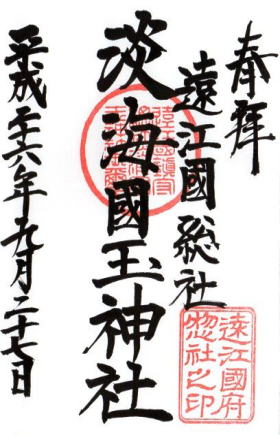 奉拝
遠江國総社
淡海國玉神社
平成二十六年九月二十七日
遠江國府
惣社之印